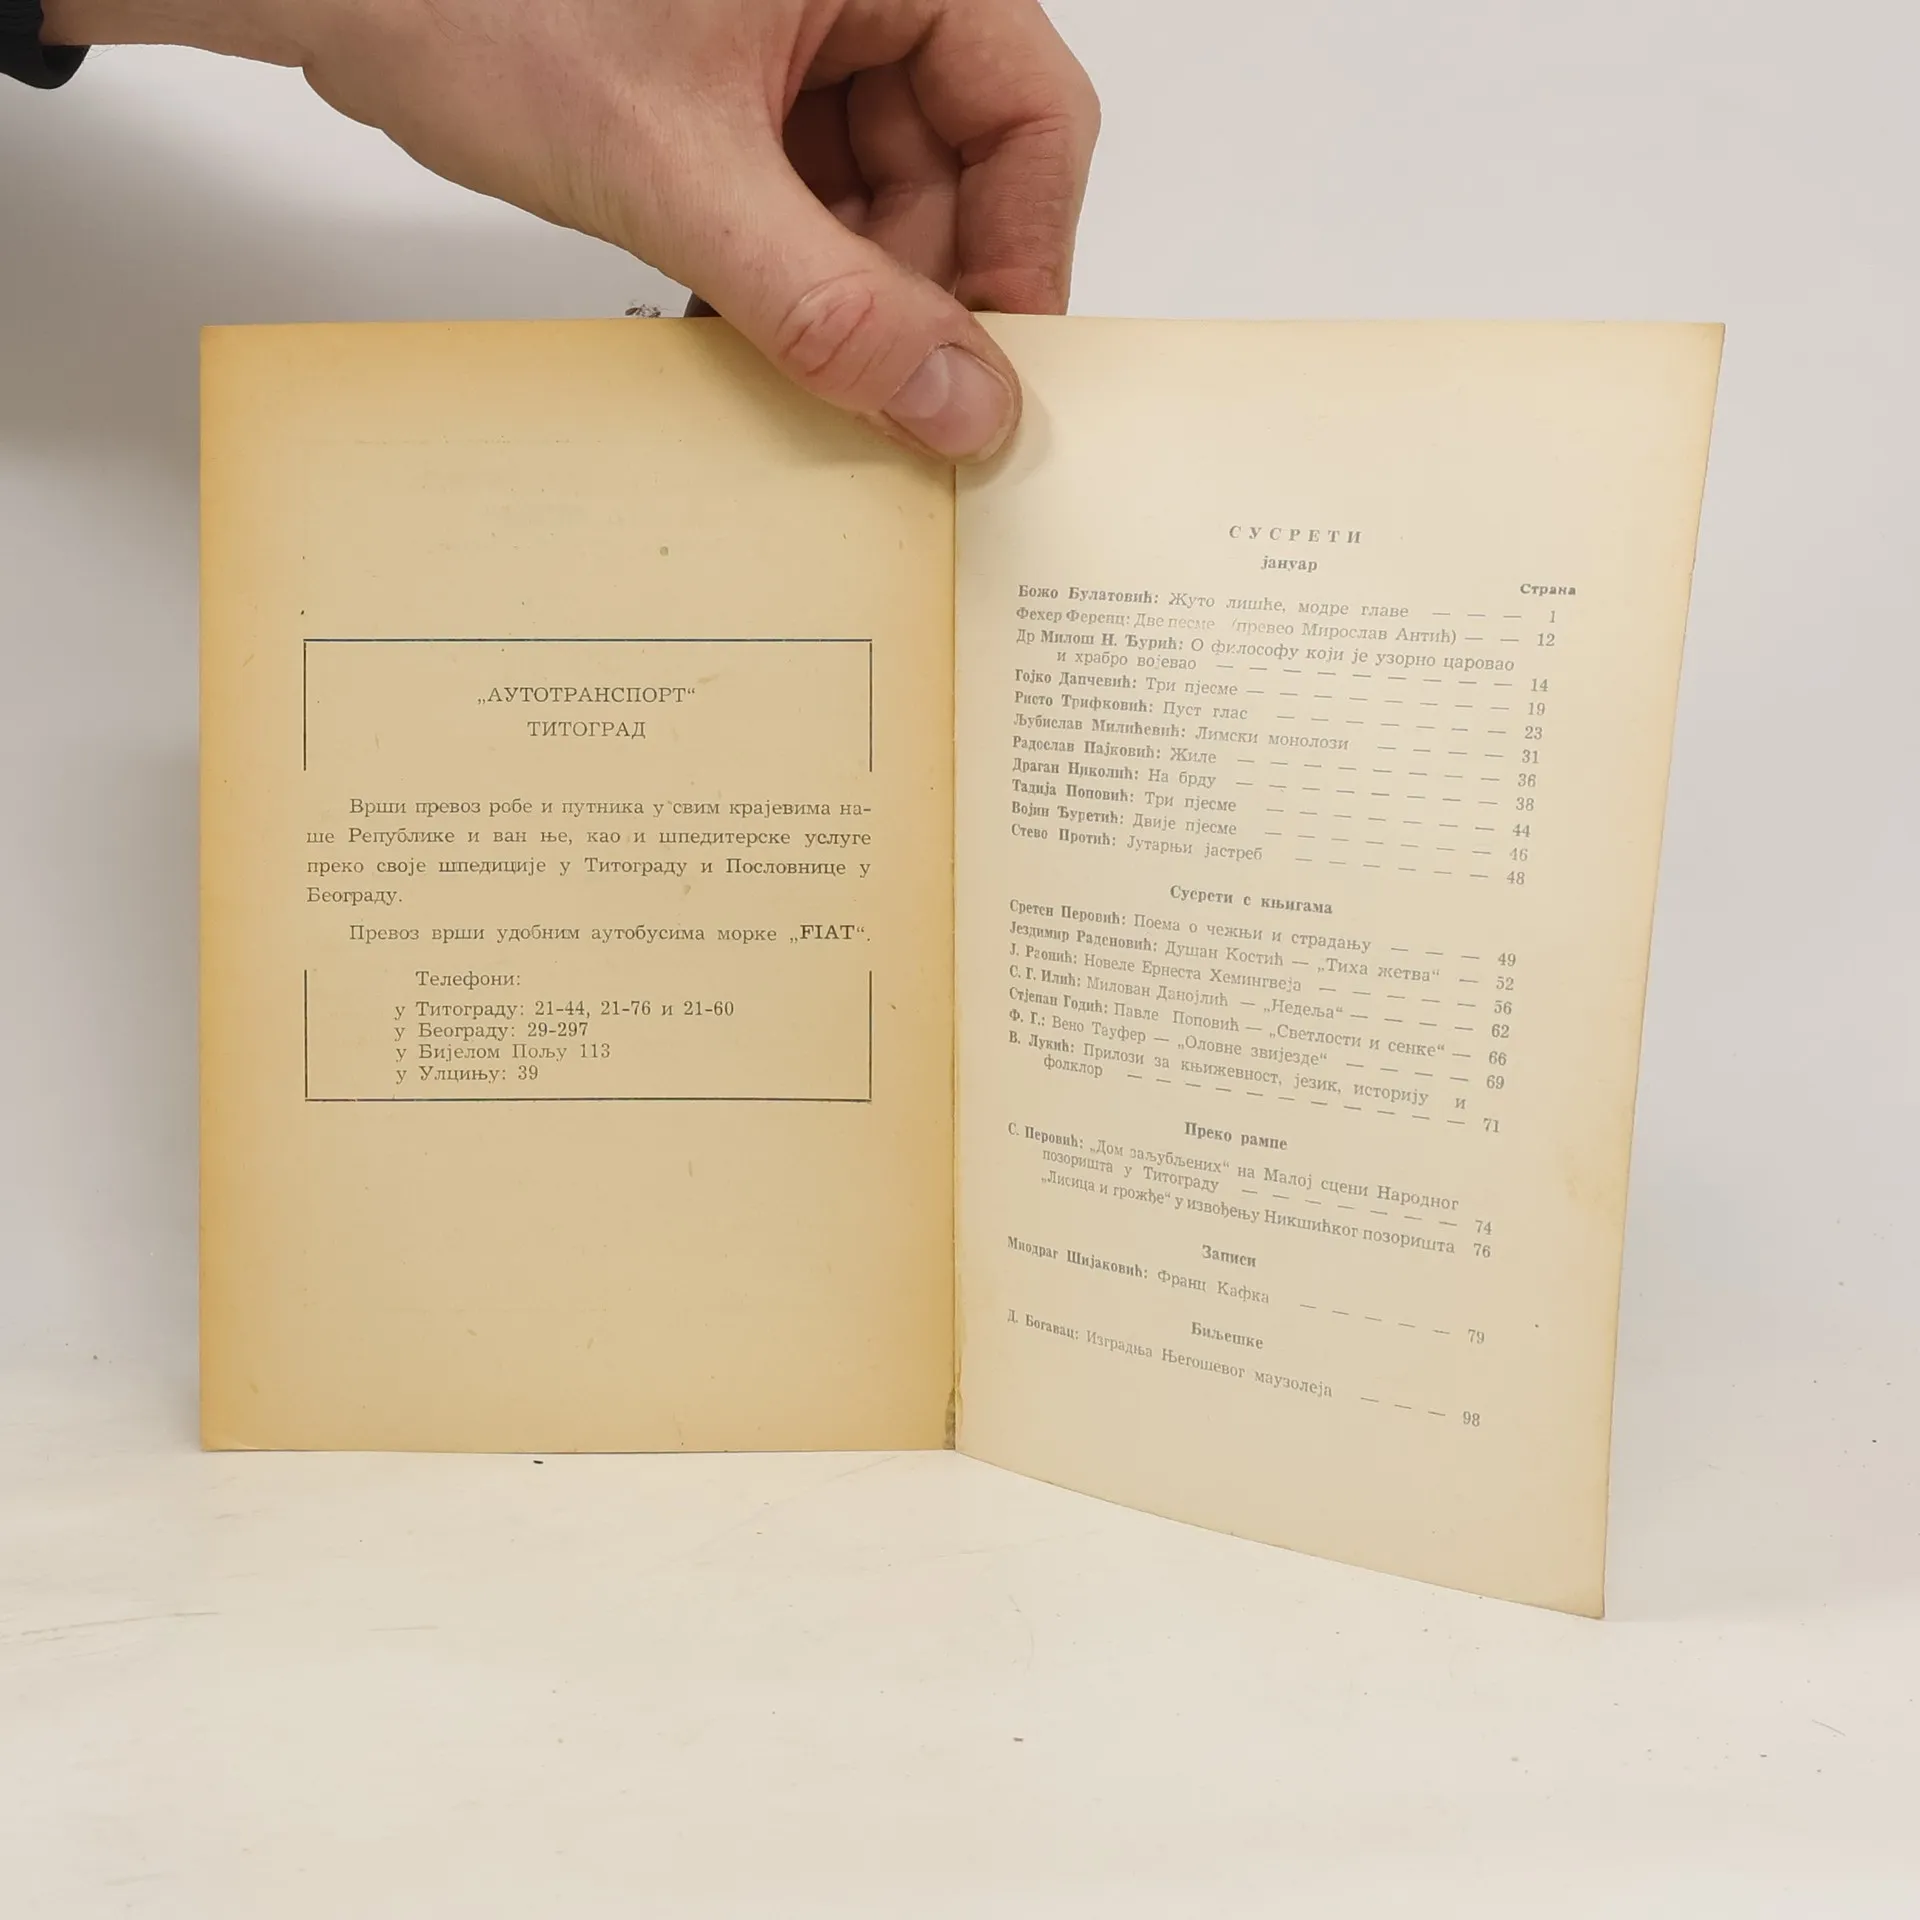 „АУТОТРАНСПОРТ“
ТИТОГРАД
Врши превоз робе и путника у свим крајевима на-
ше Републике и ван ње, као и шпедитерске услуге
преко своје шпедиције у Титограду и Пословнице у
Београду.
Превоз врши удобним аутобусима морке „FIAT“.
Телефони:
у Титограду: 21-44, 21-76 и 21-60
у Београду: 29-297
у Бијелом Пољу 113
у Улцињу: 39
СУСРЕТИ
јануар
Страна
Божо Булатовић: Жуто лишће, модре главе — — — 1
Фехер Ференц: Две песме (превео Мирослав Антић) — — 12
Др Милош Н. Ђурић: О философу који је узорно царовао
и храбро војевао — — — — — — — — — 14
Гојко Дапчевић: Три пјесме — — — — — — — — 19
Ристо Трифковић: Пуст глас — — — — — — — 23
Љубислав Милићевић: Лимски монолози — — — — 31
Радослав Пајковић: Жиле — — — — — — — — 36
Драган Николић: На брду — — — — — — — — 38
Тадија Поповић: Три пјесме — — — — — — — — 44
Војин Ђуретић: Двије пјесме — — — — — — — 46
Стево Протић: Јутарњи јастреб — — — — — — 48
Сусрети с књигама
Сретен Перовић: Поема о чежњи и страдању — — — 49
Јездимир Раденовић: Душан Костић — „Тиха жетва“ — 52
Ј. Раонић: Новеле Ернеста Хемингвеја — — — — — 56
С. Г. Илић: Милован Данојлић — „Недеља“ — — — — 62
Стјепан Годић: Павле Поповић — „Светлости и сенке“ — 66
Ф. Г.: Вено Тауфер — „Оловне звијезде“ — — — — — 69
В. Лукић: Прилози за књижевност, језик, историју и
фолклор — — — — — — — — — — — — 71
Преко рампе
С. Перовић: „Дом заљубљених“ на Малој сцени Народног
позоришта у Титограду — — — — — — — 74
„Лисица и грожђе“ у извођењу Никшићког позоришта 76
Записи
Миодраг Шијаковић: Франц Кафка — — — — — 79
Биљешке
Д. Богавац: Изградња Његошевог маузолеја — — — 98